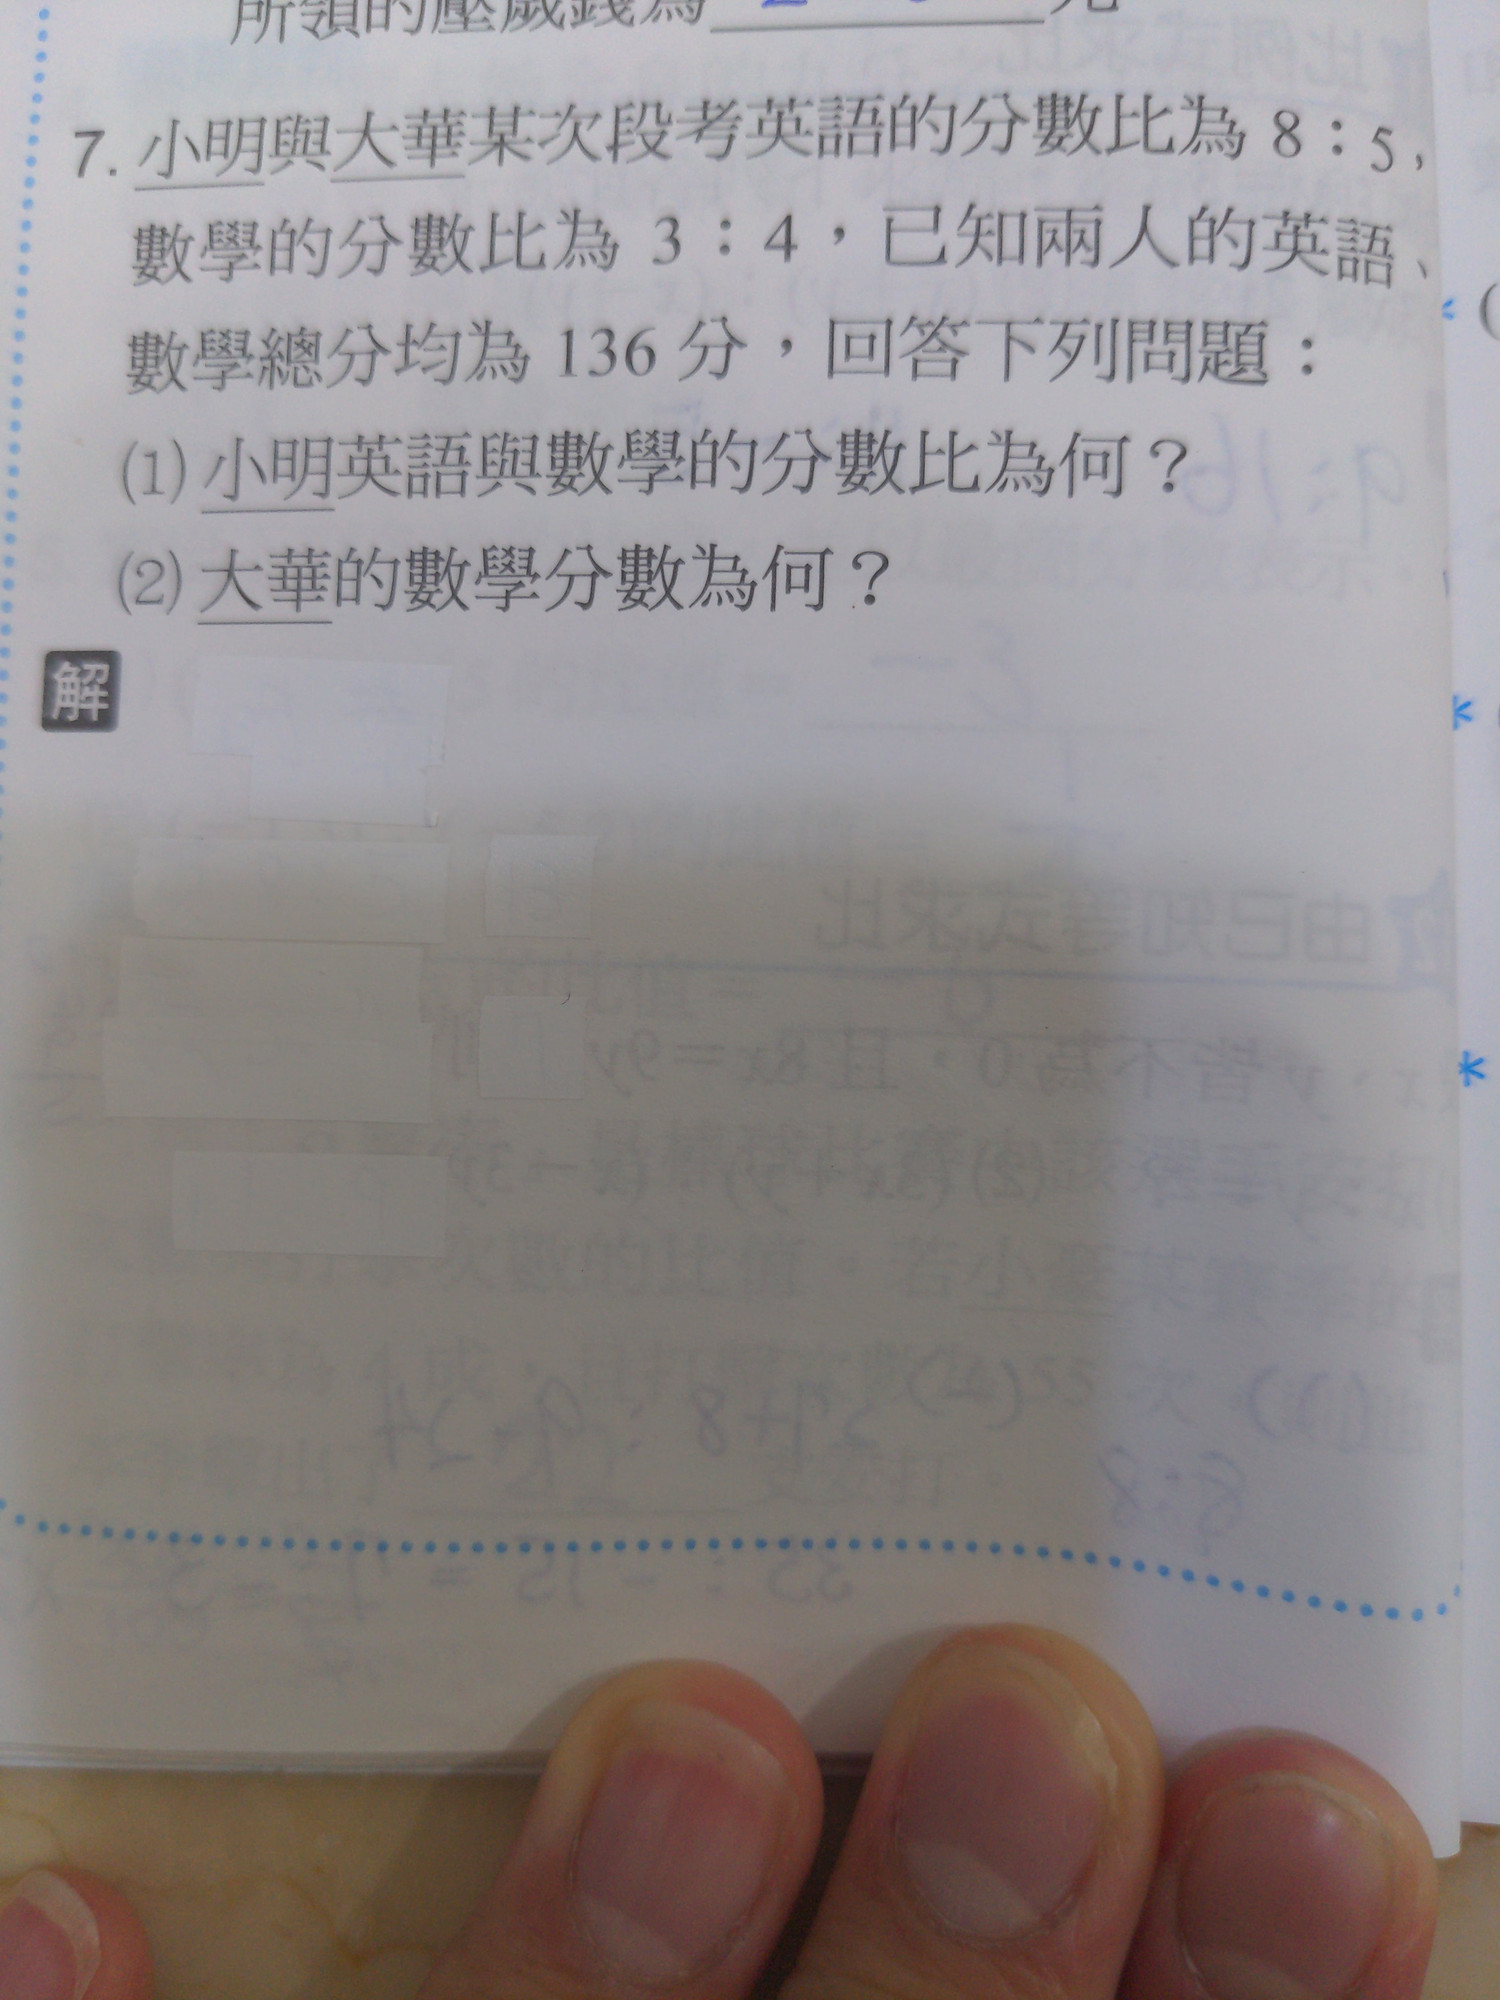 所領的壓歲錢為
7. 小明與大華某次段考英語的分數比為 8：5，
數學的分數比為 3：4，已知兩人的英語、
數學總分均為 136 分，回答下列問題：
(1) 小明英語與數學的分數比為何？
(2) 大華的數學分數為何？
解